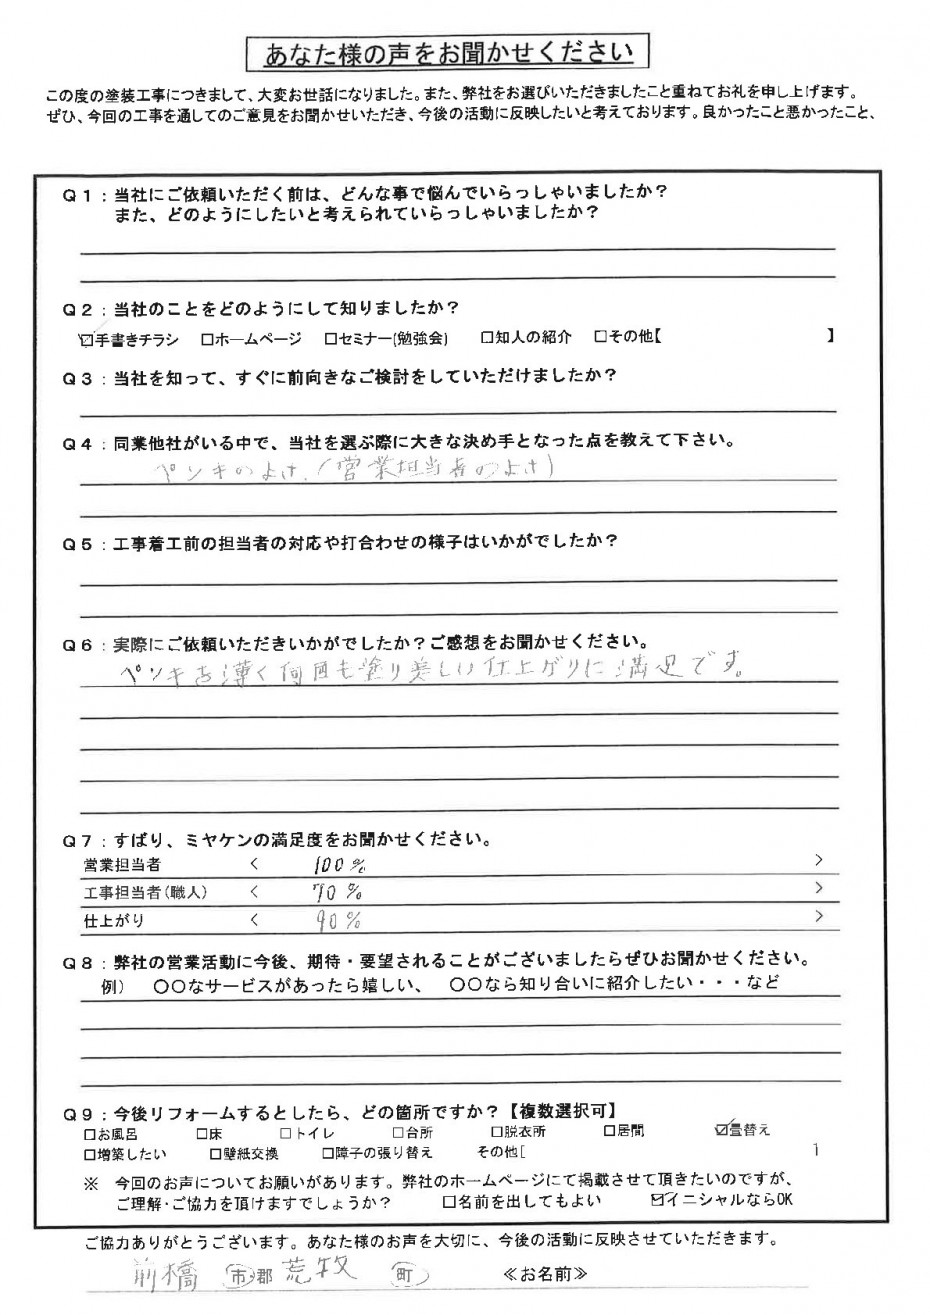 あなた様の声をお聞かせください
この度の塗装工事につきまして、大変お世話になりました。また、弊社をお選びいただきましたこと重ねてお礼を申し上げます。
ぜひ、今回の工事を通してのご意見をお聞かせいただき、今後の活動に反映したいと考えております。良かったこと悪かったこと、
Q1：当社にご依頼いただく前は、どんな事で悩んでいらっしゃいましたか？
また、どのようにしたいと考えられていらっしゃいましたか？
Q2：当社のことをどのようにして知りましたか？
☑手書きチラシ □ホームページ □セミナー(勉強会) □知人の紹介 □その他【 】
Q3：当社を知って、すぐに前向きなご検討をしていただけましたか？
Q4：同業他社がいる中で、当社を選ぶ際に大きな決め手となった点を教えて下さい。
ペンキのよさ、(営業担当者のよさ)
Q5：工事着工前の担当者の対応や打合わせの様子はいかがでしたか？
Q6：実際にご依頼いただきいかがでしたか？ご感想をお聞かせください。
ペンキを薄く何回も塗り美しい仕上がりに満足です。
Q7：すばり、ミヤケンの満足度をお聞かせください。
営業担当者 ＜ 100% ＞
工事担当者(職人) ＜ 70% ＞
仕上がり ＜ 90% ＞
Q8：弊社の営業活動に今後、期待・要望されることがございましたらぜひお聞かせください。
例） 〇〇なサービスがあったら嬉しい、 〇〇なら知り合いに紹介したい・・・など
Q9：今後リフォームするとしたら、どの箇所ですか？【複数選択可】
□お風呂 □床 □トイレ □台所 □脱衣所 □居間 ☑畳替え
□増築したい □壁紙交換 □障子の張り替え その他[ ]
※ 今回のお声についてお願いがあります。弊社のホームページにて掲載させて頂きたいのですが、
ご理解・ご協力を頂けますでしょうか？ □名前を出してもよい ☑イニシャルならOK
ご協力ありがとうございます。あなた様のお声を大切に、今後の活動に反映させていただきます。
前橋 市 郡 荒牧 町 ≪お名前≫